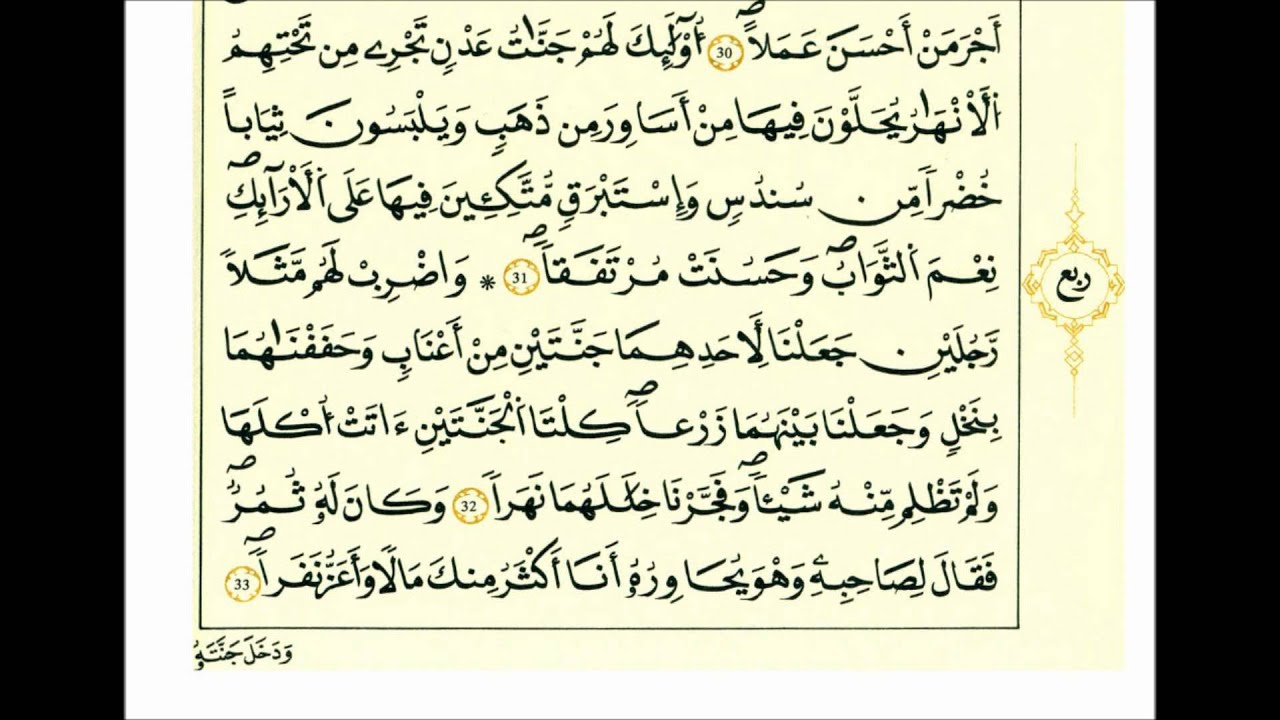 أَجْرَ مَنْ أَحْسَنَ عَمَلاًۖ 30 اُوْلَٰٓئِكَ لَهُمْ جَنَّٰتُ عَدْنٖ تَجْرِے مِن تَحْتِهِمُ
اُ۬لْأَنْهَٰرُ يُحَلَّوْنَ فِيهَا مِنْ أَسَاوِرَ مِن ذَهَبٖ وَيَلْبَسُونَ ثِيَاباً
خُضْراٗ مِّن سُندُسٖ وَإِسْتَبْرَقٖ مُّتَّكِـِٕينَ فِيهَا عَلَى اَ۬لْأَرَآئِكِۖ
نِعْمَ اَ۬لثَّوَابُۖ وَحَسُنَتْ مُرْتَفَقاٗۖ 31 * وَاضْرِبْ لَهُم مَّثَلاٗ
رَّجُلَيْنِ جَعَلْنَا لِأَحَدِهِمَا جَنَّتَيْنِ مِنْ أَعْنَٰبٖ وَحَفَفْنَٰهُمَا
بِنَخْلٖ وَجَعَلْنَا بَيْنَهُمَا زَرْعاٗۖ كِلْتَا اَ۬لْجَنَّتَيْنِ ءَاتَتْ اُكْلَهَا
وَلَمْ تَظْلِم مِّنْهُ شَيْـٔاٗۖ وَفَجَّرْنَا خِلَٰلَهُمَا نَهَراٗ 32 وَكَانَ لَهُۥ ثُمُرٞۖ
فَقَالَ لِصَٰحِبِهِۦ وَهْوَ يُحَاوِرُهُۥٓ أَنَا أَكْثَرُ مِنكَ مَالاٗ وَأَعَزُّ نَفَراٗۖ 33
وَدَخَلَ جَنَّتَهُۥ
ربع